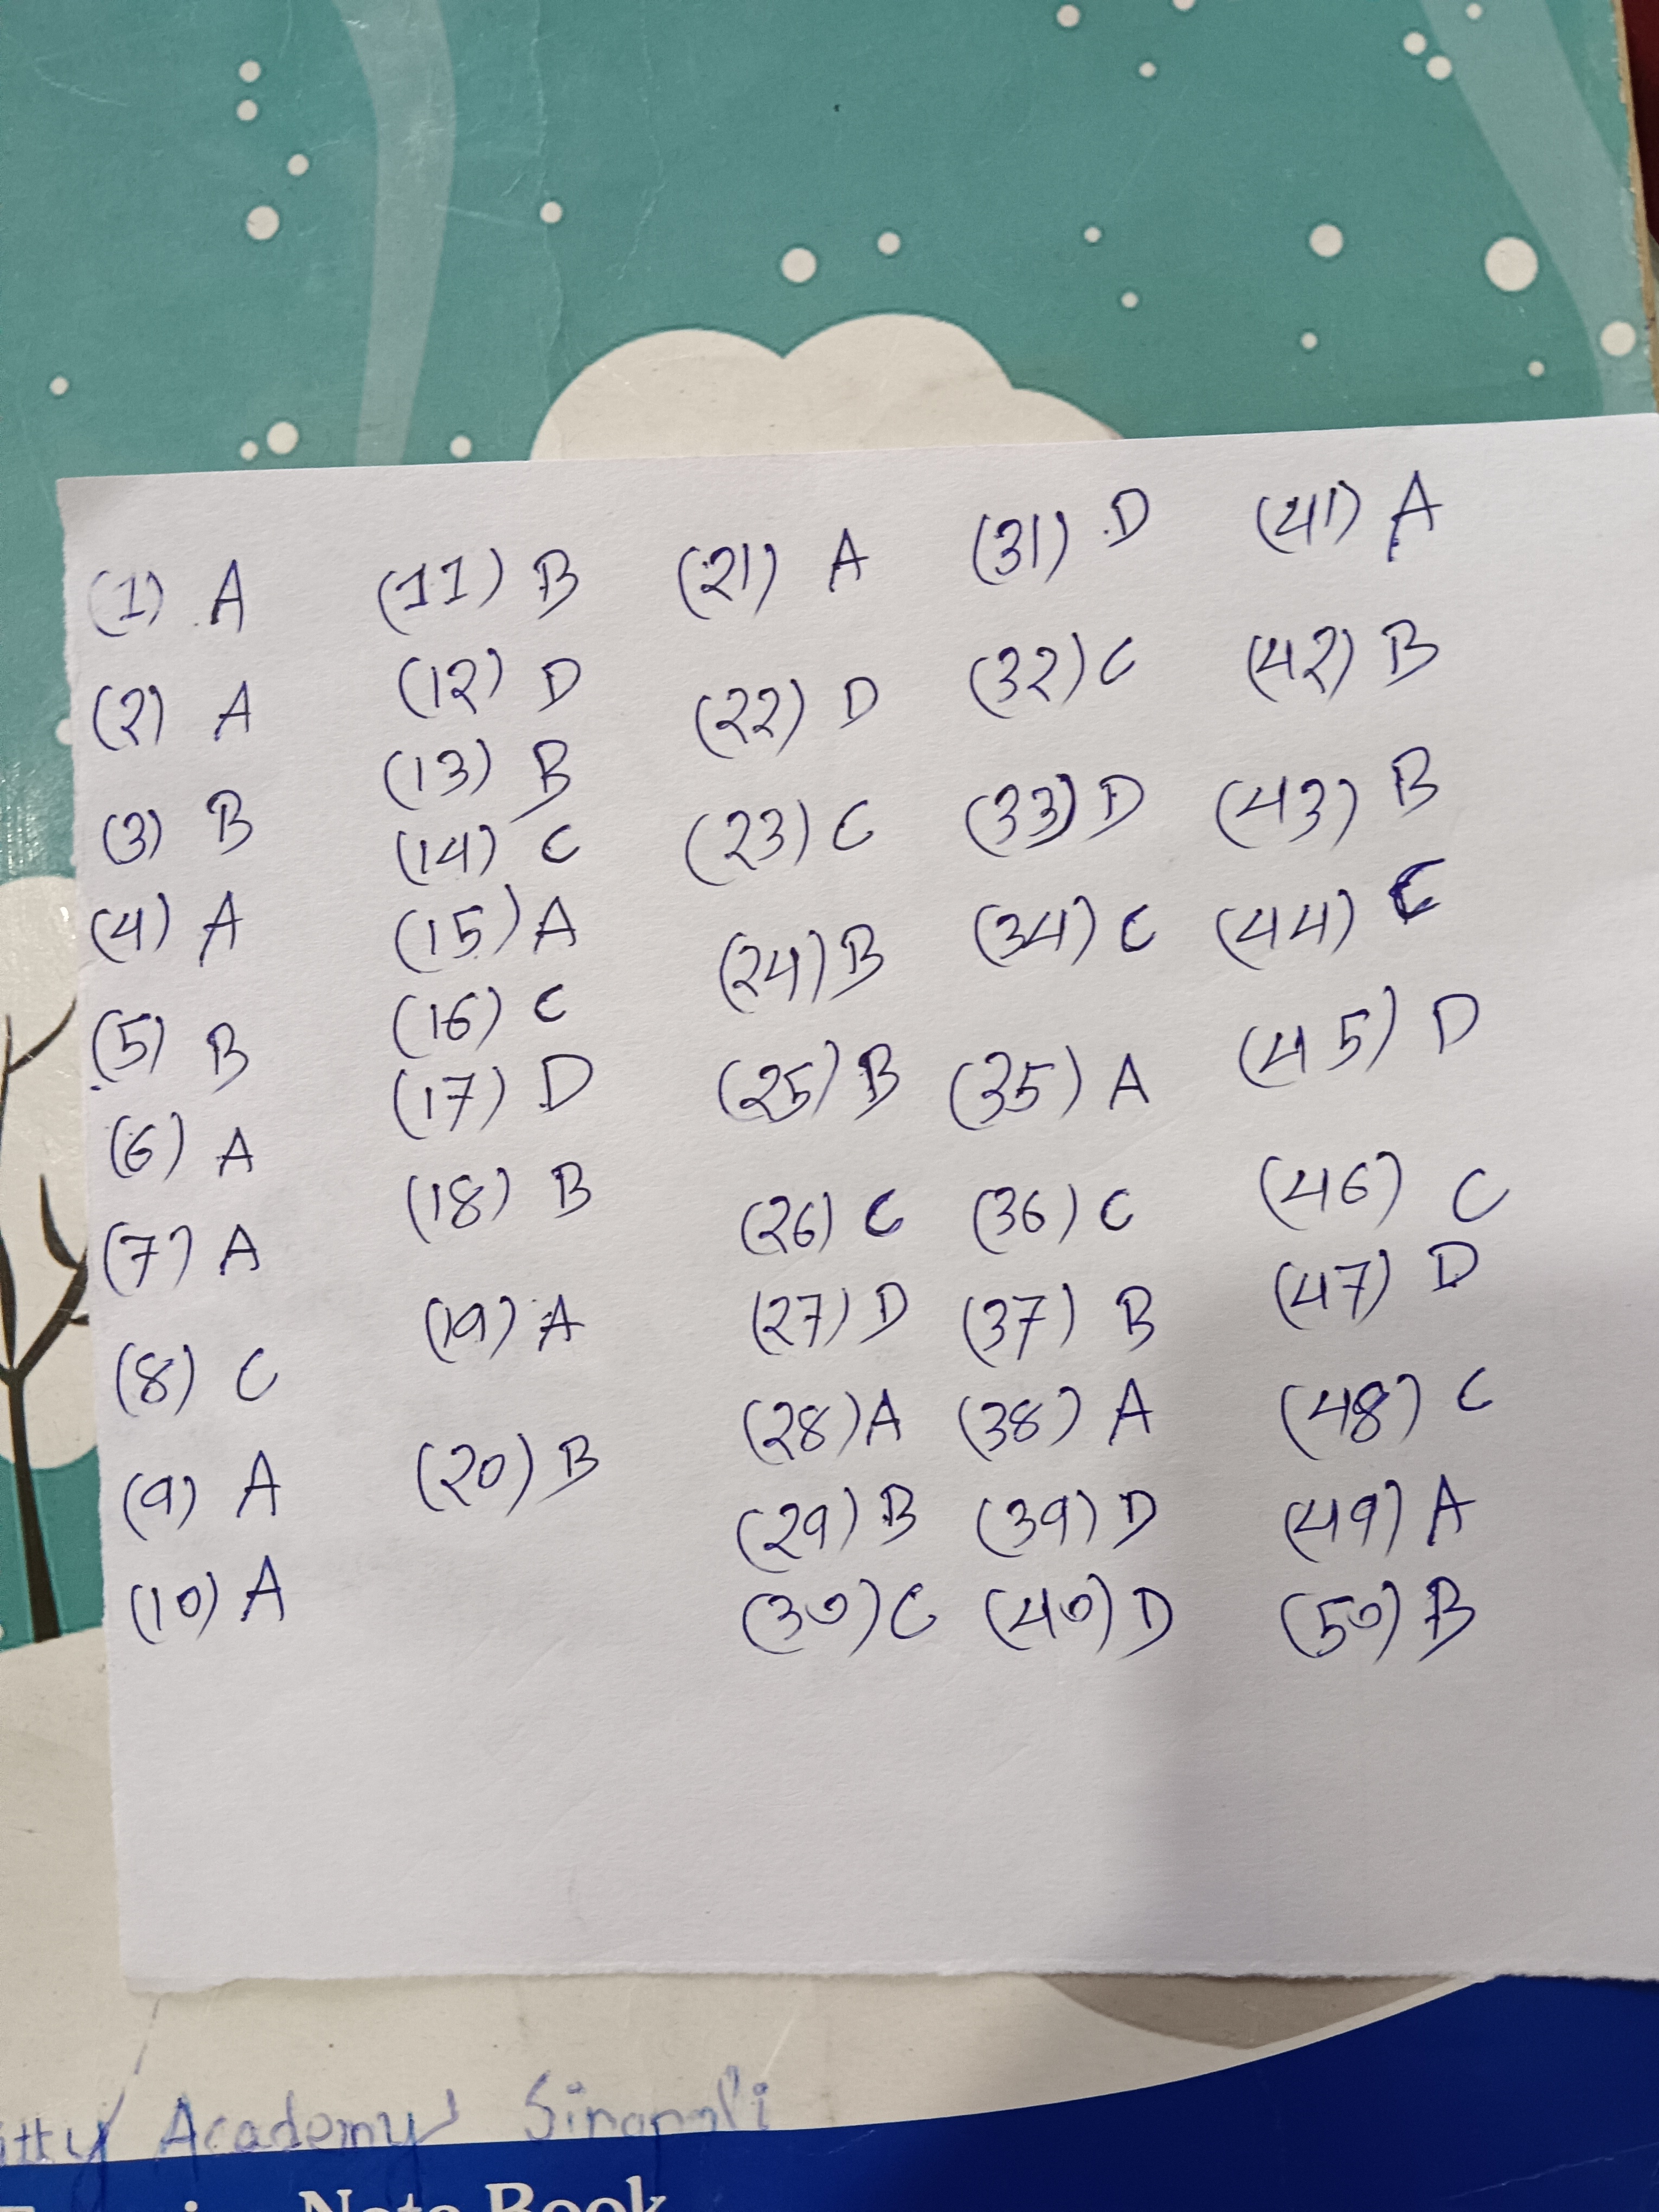 (1) A
(2) A
(3) B
(4) A
(5) B
(6) A
(7) A
(8) C
(9) A
(10) A
(11) B
(12) D
(13) B
(14) C
(15) A
(16) C
(17) D
(18) B
(19) A
(20) B
(21) A
(22) D
(23) C
(24) B
(25) B
(26) C
(27) D
(28) A
(29) B
(30) C
(31) D
(32) C
(33) D
(34) C
(35) A
(36) C
(37) B
(38) A
(39) D
(40) D
(41) A
(42) B
(43) B
(44) C
(45) D
(46) C
(47) D
(48) C
(49) A
(50) B
Academy
Note Book